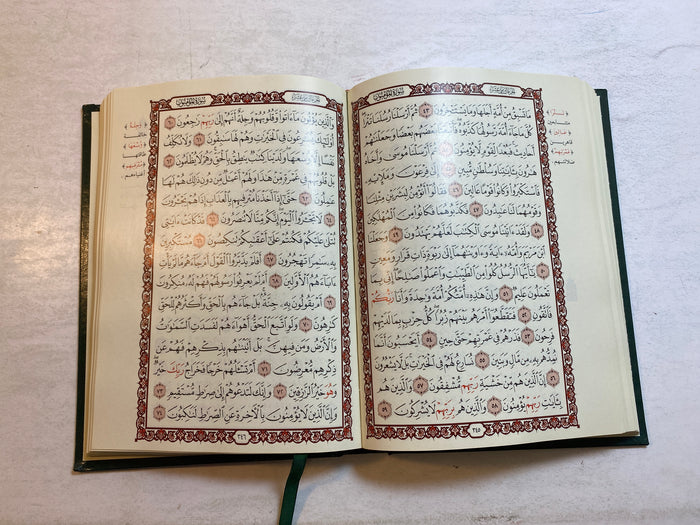 سُورَةُ المُؤْمِنُونَ
مَا تَسْبِقُ مِنْ أُمَّةٍ أَجَلَهَا وَمَا يَسْتَـْٔخِرُونَ ٤٣ ثُمَّ أَرْسَلْنَا رُسُلَنَا تَتْرَا
كُلَّ مَا جَآءَ أُمَّةً رَّسُولُهَا كَذَّبُوهُ فَأَتْبَعْنَا بَعْضَهُم بَعْضًا وَجَعَلْنَٰهُمْ
أَحَادِيثَ فَبُعْدًا لِّقَوْمٍ لَّا يُؤْمِنُونَ ٤٤ ثُمَّ أَرْسَلْنَا مُوسَىٰ وَأَخَاهُ
هَٰرُونَ بِـَٔايَٰتِنَا وَسُلْطَٰنٍ مُّبِينٍ ٤٥ إِلَىٰ فِرْعَوْنَ وَمَلَإِي۟هِۦ
فَٱسْتَكْبَرُوا۟ وَكَانُوا۟ قَوْمًا عَالِينَ ٤٦ فَقَالُوٓا۟ أَنُؤْمِنُ لِبَشَرَيْنِ مِثْلِنَا
وَقَوْمُهُمَا لَنَا عَٰبِدُونَ ٤٧ فَكَذَّبُوهُمَا فَكَانُوا۟ مِنَ ٱلْمُهْلَكِينَ
٤٨ وَلَقَدْ ءَاتَيْنَا مُوسَى ٱلْكِتَٰبَ لَعَلَّهُمْ يَهْتَدُونَ ٤٩ وَجَعَلْنَا
ٱبْنَ مَرْيَمَ وَأُمَّهُۥٓ ءَايَةً وَءَاوَيْنَٰهُمَآ إِلَىٰ رَبْوَةٍ ذَاتِ قَرَارٍ وَمَعِينٍ
٥٠ يَٰٓأَيُّهَا ٱلرُّسُلُ كُلُوا۟ مِنَ ٱلطَّيِّبَٰتِ وَٱعْمَلُوا۟ صَٰلِحًا إِنِّى بِمَا
تَعْمَلُونَ عَلِيمٌ ٥١ وَإِنَّ هَٰذِهِۦٓ أُمَّتُكُمْ أُمَّةً وَٰحِدَةً وَأَنَا۠ رَبُّكُمْ
فَٱتَّقُونِ ٥٢ فَتَقَطَّعُوٓا۟ أَمْرَهُم بَيْنَهُمْ زُبُرًا كُلُّ حِزْبٍۭ بِمَا لَدَيْهِمْ
فَرِحُونَ ٥٣ فَذَرْهُمْ فِى غَمْرَتِهِمْ حَتَّىٰ حِينٍ ٥٤ أَيَحْسَبُونَ أَنَّمَا
نُمِدُّهُم بِهِۦ مِن مَّالٍ وَبَنِينَ ٥٥ نُسَارِعُ لَهُمْ فِى ٱلْخَيْرَٰتِ بَل لَّا يَشْعُرُونَ
٥٦ إِنَّ ٱلَّذِينَ هُم مِّنْ خَشْيَةِ رَبِّهِم مُّشْفِقُونَ ٥٧ وَٱلَّذِينَ هُم
بِـَٔايَٰتِ رَبِّهِمْ يُؤْمِنُونَ ٥٨ وَٱلَّذِينَ هُم بِرَبِّهِمْ لَا يُشْرِكُونَ ٥٩
٣٤٥
﴿تَتْرَا﴾
متتابعين
﴿عَالِينَ﴾
قاهرين
﴿غَمْرَتِهِمْ﴾
ضلالتهم
سُورَةُ المُؤْمِنُونَ
وَٱلَّذِينَ يُؤْتُونَ مَآ ءَاتَوا۟ وَّقُلُوبُهُمْ وَجِلَةٌ أَنَّهُمْ إِلَىٰ رَبِّهِمْ رَٰجِعُونَ ٦٠
أُو۟لَٰٓئِكَ يُسَٰرِعُونَ فِى ٱلْخَيْرَٰتِ وَهُمْ لَهَا سَٰبِقُونَ ٦١ وَلَا نُكَلِّفُ
نَفْسًا إِلَّا وُسْعَهَا وَلَدَيْنَا كِتَٰبٌ يَنطِقُ بِٱلْحَقِّ وَهُمْ لَا يُظْلَمُونَ ٦٢
بَلْ قُلُوبُهُمْ فِى غَمْرَةٍ مِّنْ هَٰذَا وَلَهُمْ أَعْمَٰلٌ مِّن دُونِ ذَٰلِكَ هُمْ لَهَا
عَٰمِلُونَ ٦٣ حَتَّىٰٓ إِذَآ أَخَذْنَا مُتْرَفِيهِم بِٱلْعَذَابِ إِذَا هُمْ يَجْـَٔرُونَ
٦٤ لَا تَجْـَٔرُوا۟ ٱلْيَوْمَ إِنَّكُم مِّنَّا لَا تُنصَرُونَ ٦٥ قَدْ كَانَتْ ءَايَٰتِى
تُتْلَىٰ عَلَيْكُمْ فَكُنتُمْ عَلَىٰٓ أَعْقَٰبِكُمْ تَنكِصُونَ ٦٦ مُسْتَكْبِرِينَ
بِهِۦ سَٰمِرًا تَهْجُرُونَ ٦٧ أَفَلَمْ يَدَّبَّرُوا۟ ٱلْقَوْلَ أَمْ جَآءَهُم مَّا لَمْ يَأْتِ
ءَابَآءَهُمُ ٱلْأَوَّلِينَ ٦٨ أَمْ لَمْ يَعْرِفُوا۟ رَسُولَهُمْ فَهُمْ لَهُۥ مُنكِرُونَ
٦٩ أَمْ يَقُولُونَ بِهِۦ جِنَّةٌۢ بَلْ جَآءَهُم بِٱلْحَقِّ وَأَكْثَرُهُمْ لِلْحَقِّ
كَٰرِهُونَ ٧٠ وَلَوِ ٱتَّبَعَ ٱلْحَقُّ أَهْوَآءَهُمْ لَفَسَدَتِ ٱلسَّمَٰوَٰتُ
وَٱلْأَرْضُ وَمَن فِيهِنَّ بَلْ أَتَيْنَٰهُم بِذِكْرِهِمْ فَهُمْ عَن
ذِكْرِهِم مُّعْرِضُونَ ٧١ أَمْ تَسْـَٔلُهُمْ خَرْجًا فَخَرَاجُ رَبِّكَ خَيْرٌ
وَهُوَ خَيْرُ ٱلرَّٰزِقِينَ ٧٢ وَإِنَّكَ لَتَدْعُوهُمْ إِلَىٰ صِرَٰطٍ مُّسْتَقِيمٍ ٧٣
وَإِنَّ ٱلَّذِينَ لَا يُؤْمِنُونَ بِٱلْءَاخِرَةِ عَنِ ٱلصِّرَٰطِ لَنَٰكِبُونَ ٧٤
٣٤٦
﴿وَجِلَةٌ﴾
خائفة
﴿وُسْعَهَا﴾
طاقتها
﴿مُتْرَفِيهِم﴾
أغنياءهم